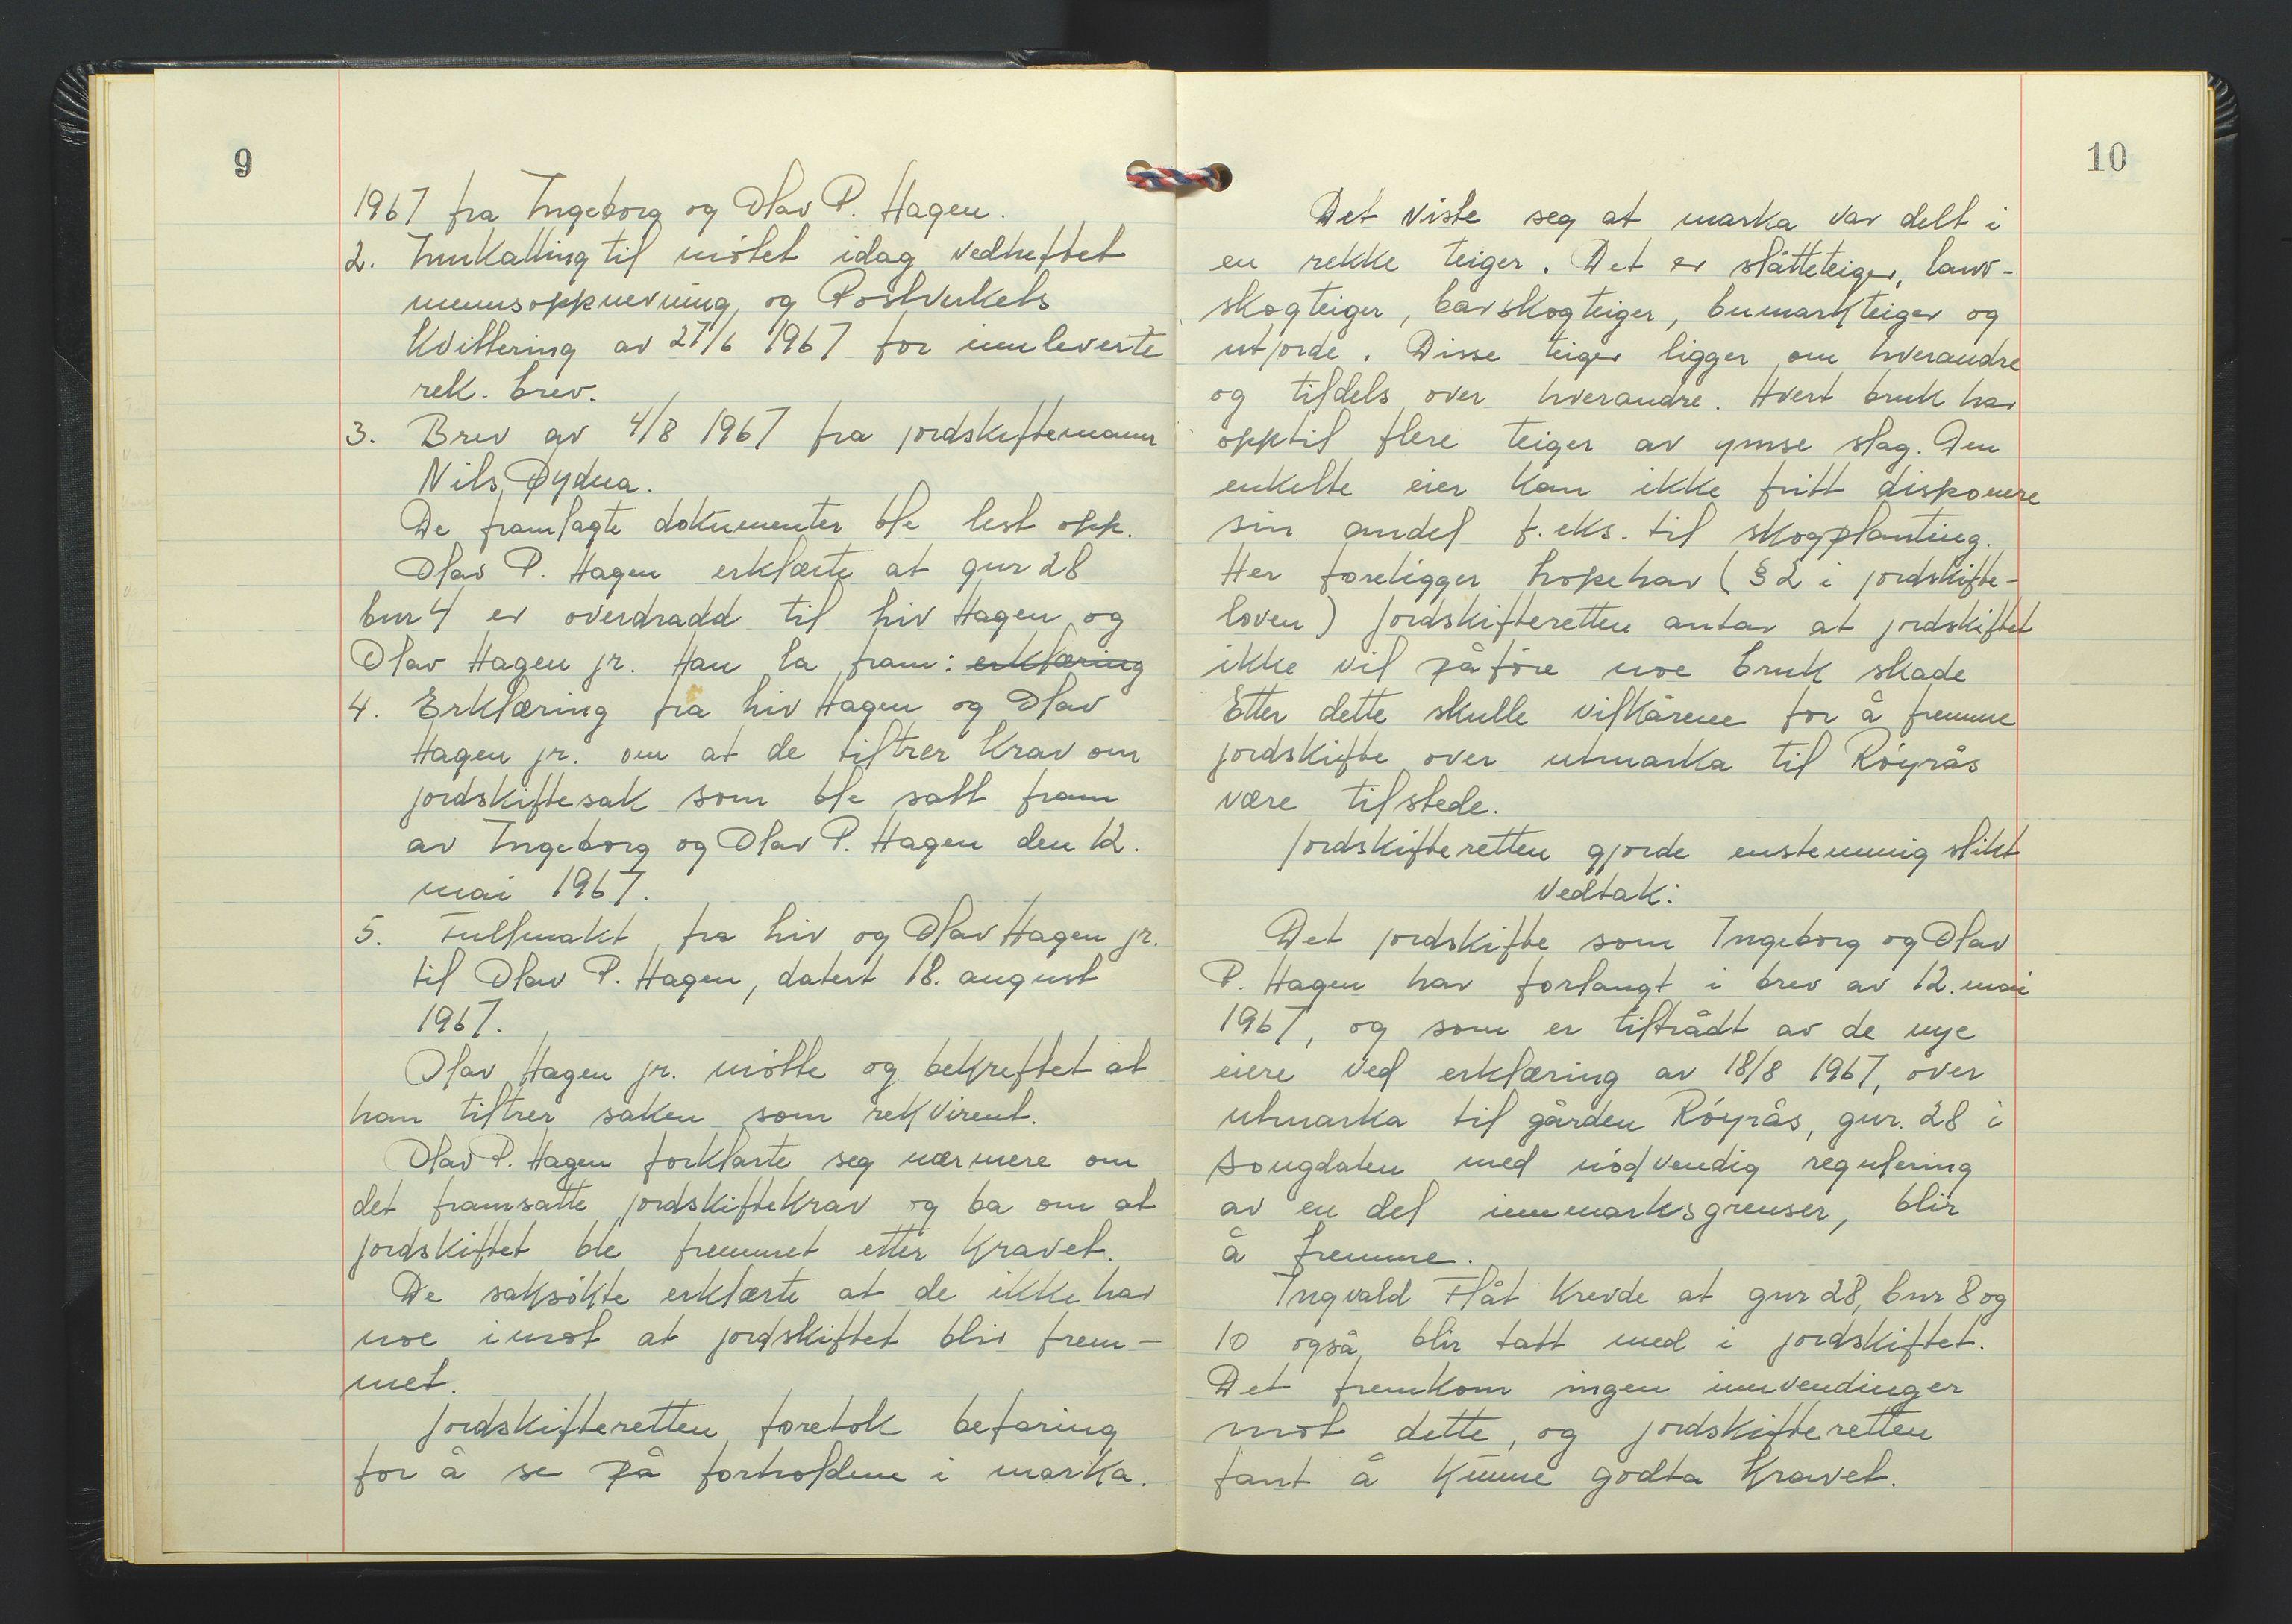 9
1967 fra Ingeborg og Olav P. Hagen.
2. Innkalling til møtet idag vedheftet
mannsoppnevning og Postverkets
kvittering av 27/6 1967 for innleverte
rek. brev.
3. Brev av 4/8 1967 fra jordskiftemann
Nils Øydna.
De framlagte dokumenter ble lest opp.
Olav P. Hagen erklærte at gnr 28
bnr 4 er overdradd til Liv Hagen og
Olav Hagen jr. Han la fram: erklæring
4. Erklæring fra Liv Hagen og Olav
Hagen jr. om at de tiltrer krav om
jordskiftesak som ble satt fram
av Ingeborg og Olav P. Hagen den 12.
mai 1967.
5. Fullmakt fra Liv og Olav Hagen jr.
til Olav P. Hagen, datert 18. august
1967.
Olav Hagen jr. møtte og bekreftet at
han tiltrer saken som rekvirent.
Olav P. Hagen forklarte seg nærmere om
det framsatte jordskiftekrav og ba om at
jordskiftet ble fremmet etter kravet.
De saksøkte erklærte at de ikke har
noe imot at jordskiftet blir frem-
met.
Jordskifteretten foretok befaring
for å se på forholdene i marka.
10
Det viste seg at marka var delt i
en rekke teiger. Det er slåtteteiger, lauv-
skogteiger, barskogteiger, bumarkteiger og
utjorde. Disse teiger ligger om hverandre
og tildels over hverandre. Hvert bruk har
opptil flere teiger av ymse slag. Den
enkelte eier kan ikke fritt disponere
sin andel f.eks. til skogplanting.
Her foreligger hopehav (§ 2 i jordskifte-
loven) Jordskifteretten antar at jordskiftet
ikke vil påføre noe bruk skade
Etter dette skulle vilkårene for å fremme
jordskifte over utmarka til Røyrås
være tilstede.
Jordskifteretten gjorde enstemmig slikt
vedtak:
Det jordskifte som Ingeborg og Olav
P. Hagen har forlangt i brev av 12. mai
1967, og som er tiltrådt av de nye
eiere ved erklæring av 18/8 1967, over
utmarka til gården Røyrås, gnr. 28 i
Songdalen med nødvendig regulering
av en del innmarksgrenser, blir
å fremme.
Ingvald Flåt krevde at gnr 28, bnr 8 og
10 også blir tatt med i jordskiftet.
Det fremkom ingen innvendinger
mot dette, og jordskifteretten
fant å kunne godta kravet.